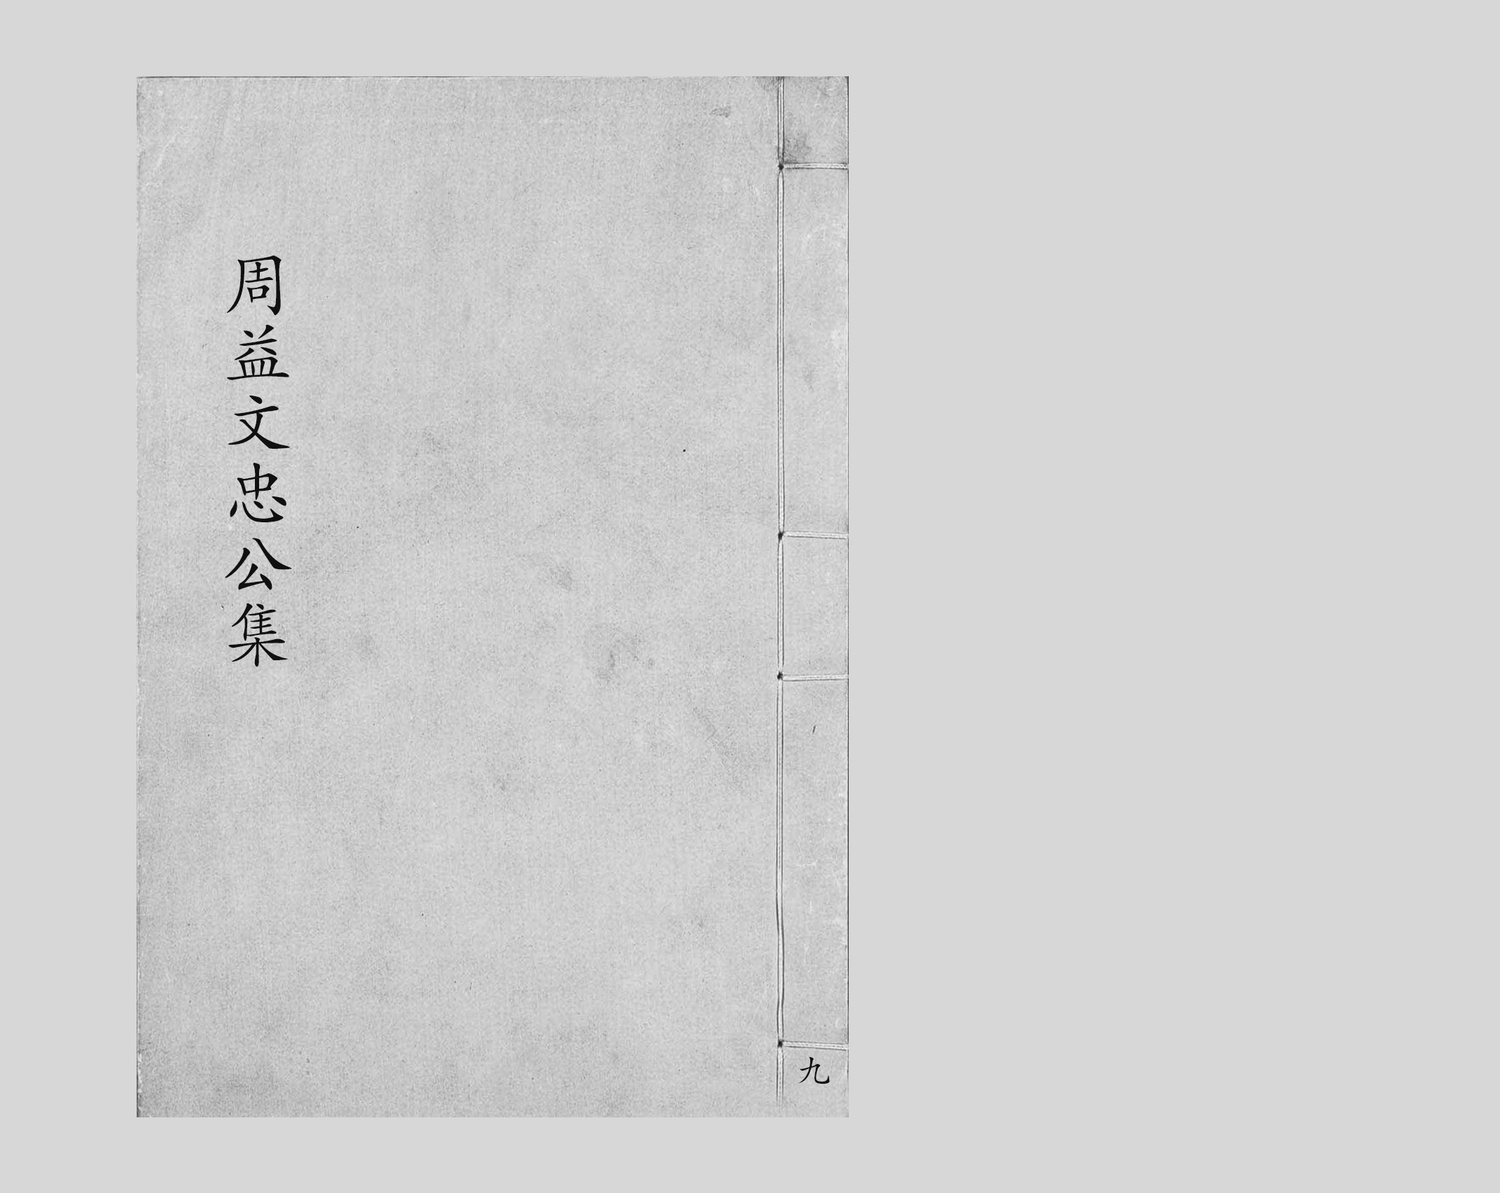 周益文忠公集
九